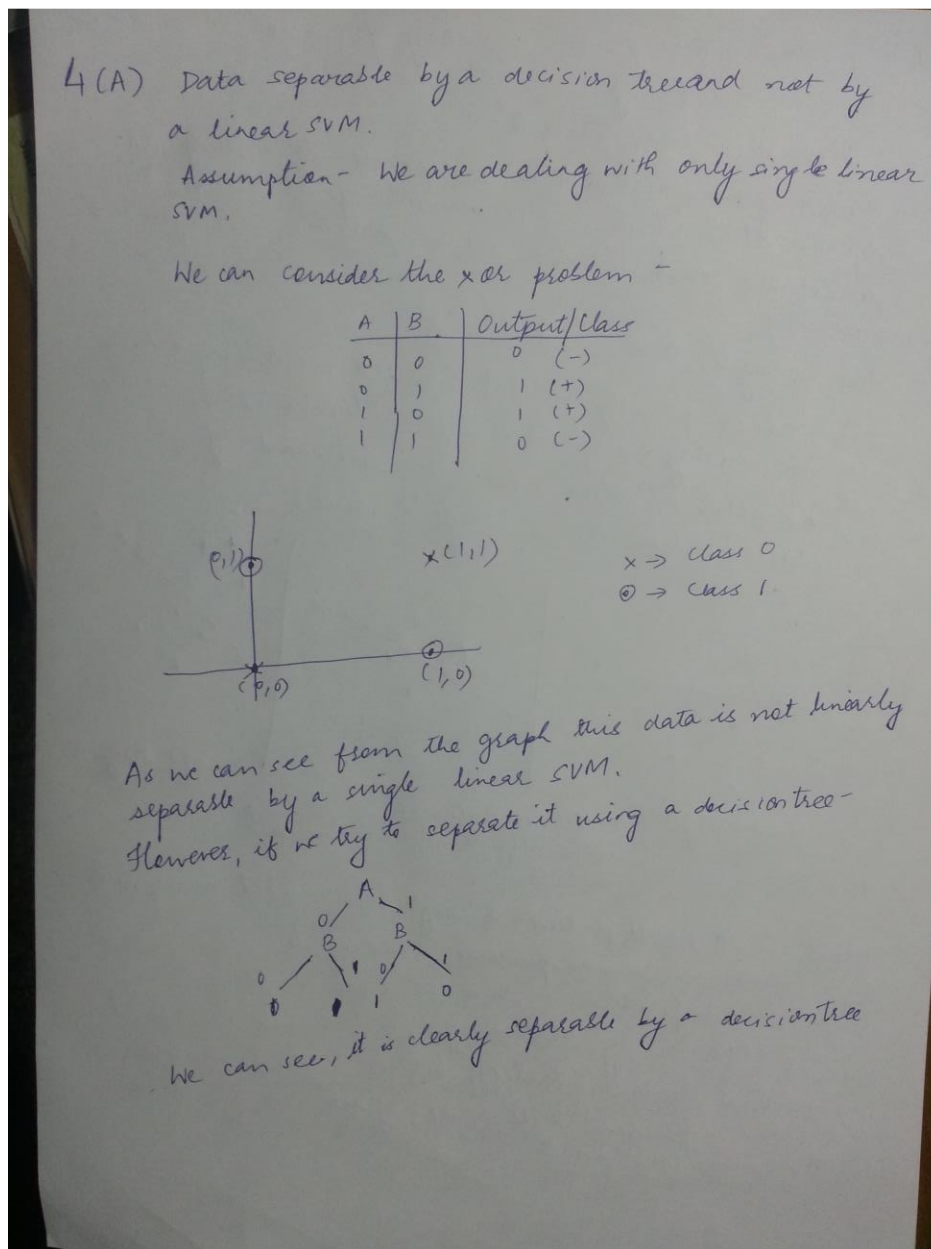 4(A) Data separable by a decision tree and not by
a linear SVM.
Assumption - We are dealing with only single linear
SVM.
We can consider the xor problem -
A | B | Output/Class
0 0 0 (-)
0 1 1 (+)
1 0 1 (+)
1 1 0 (-)
(0,1) x(1,1) x → Class 0
⊙ → Class 1
(0,0) (1,0)
As we can see from the graph this data is not linearly
separable by a single linear SVM.
However, if we try to separate it using a decision tree -
A
0 1
B B
0 1 0 1
0 1 1 0
We can see, it is clearly separable by a decision tree